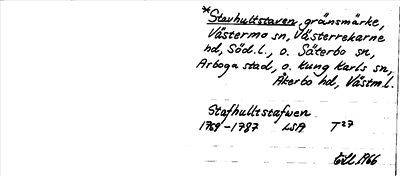 *Stavhultstaven, gränsmärke,
Västermo sn, Västerrekarne
hd, Söd.l., o. Säterbo sn,
Arboga stad, o. Kung Karls sn,
Åkerbo hd, Västm.l.
Stafhulltstafwen
1769-1787 LSA T27
1966